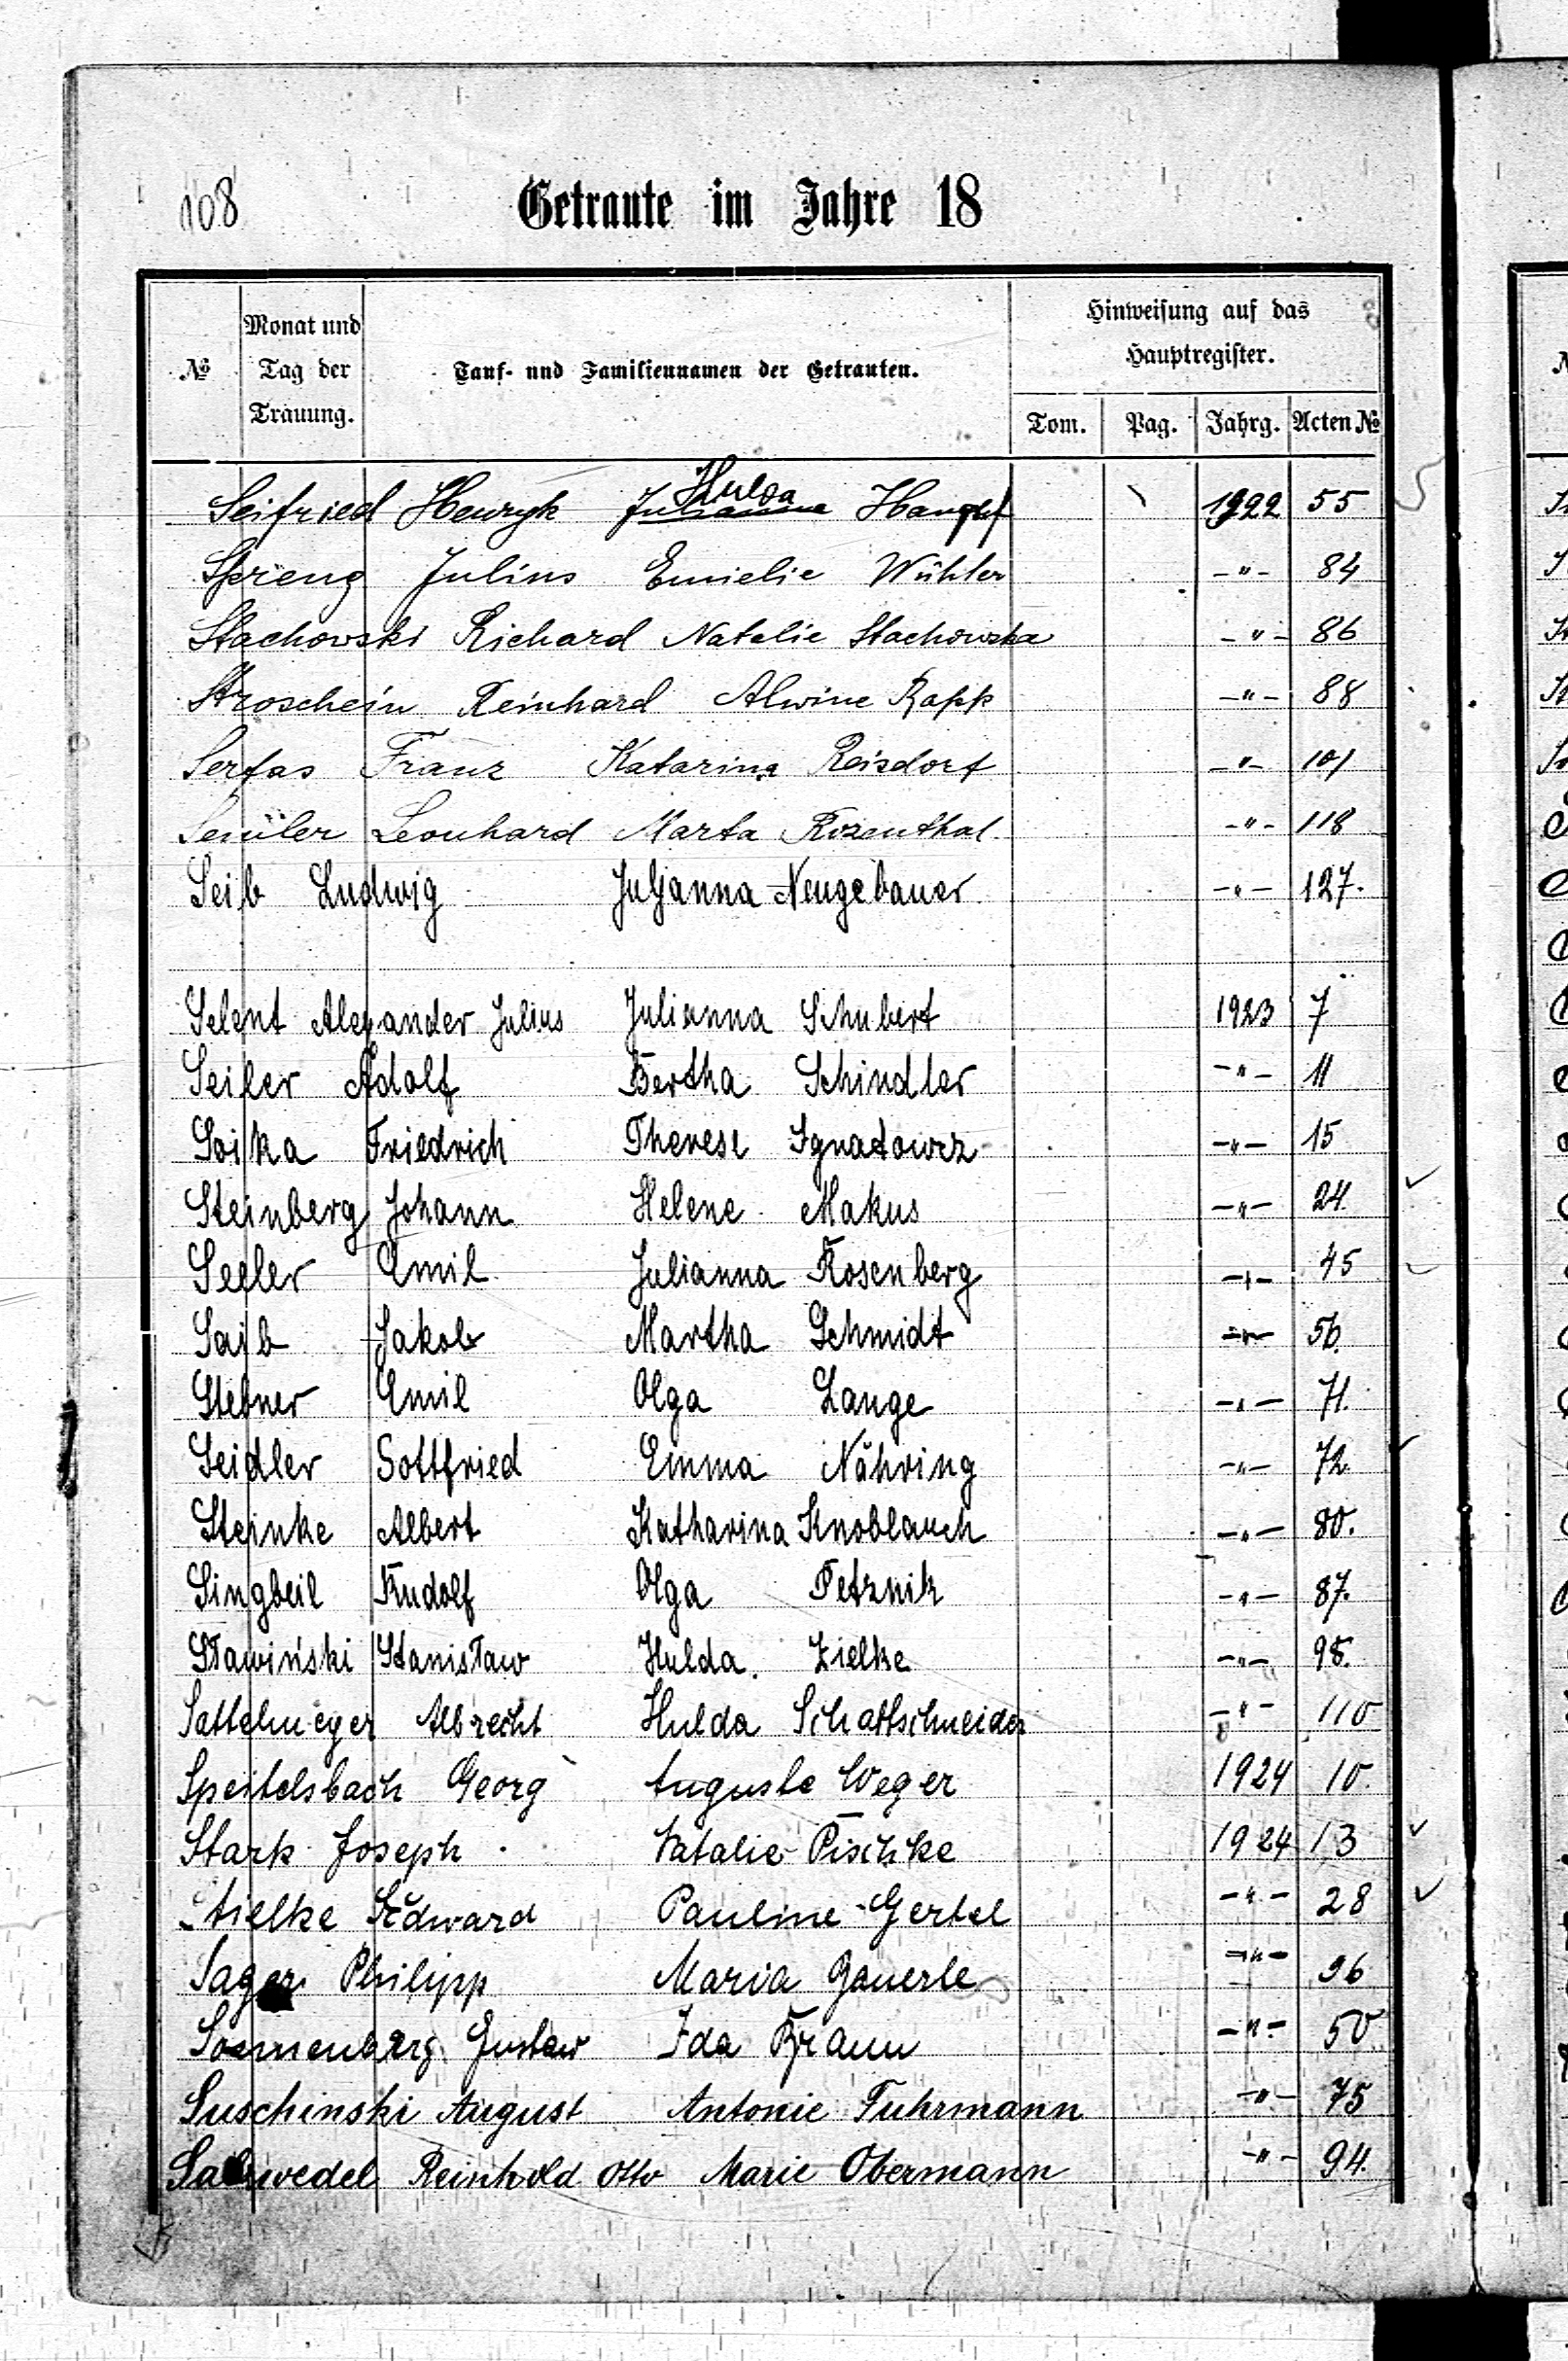 108
Getraute im Jahre 18
№
Monat und Tag der Trauung.
Tauf- und Familiennamen der Getrauten.
Hinweisung auf das Hauptregister.
Tom. Pag. Jahrg. Acten №
Hulda
Seifried Henryk Julianna Haupt 1922 55
Spreng Julius Emielie Wühler -"- 84
Stachowski Richard Natalie Stachowska -"- 86
Stroschein Reinhard Alwine Rapp -"- 88
Serfas Franz Katarina Reisdorf -"- 101
Semler Leonhard Marta Rozenthal. -"- 118
Seib Ludwig Juljanna Neugebauer. -"- 127.
Selent Alexander Julius Julianna Schubert 1923 7
Seiler Adolf Bertha Schindler -"- 11
Soika Friedrich Therese Ignatowicz -"- 15
Steinberg Johann Helene Makus -"- 24.
Seeler Emil Julianna Rosenberg -"- 45
Saib Jakob Martha Schmidt -"- 56.
Stebner Emil Olga Lange -"- 71.
Seidler Gottfried Emma Nähring -"- 72
Steinke Albert Katharina Knoblauch -"- 80.
Singbeil Rudolf Olga Petznik -"- 87.
Sławiński Stanisław Hulda Zielke -"- 98.
Sattelmeyer Albrecht Hulda Schattschneider -"- 110
Speitelsbach Georg Auguste Weger 1924 10.
Stark Joseph Natalie Pischke 1924 13
Stielke Edward Pauline Gertel -"- 28
Sager Philipp Maria Gauerle -"- 36
Sonnenberg Gustaw Ida Braun -"- 50
Suschinski August Antonie Fuhrmann -"- 75
Salzwedel Reinhold Otto Marie Obermann -"- 94.